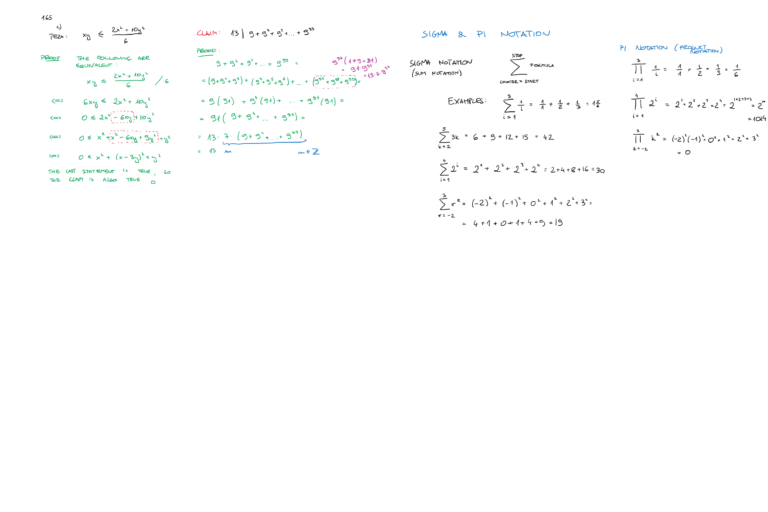 165
c)
TEZA: xy ≤ (2x² + 10y²)/6
PROOF THE FOLLOWING ARE
EQUIVALENT:
xy ≤ (2x² + 10y²)/6 / 6
6xy ≤ 2x² + 10y²
0 ≤ 2x² - 6xy + 10y²
0 ≤ x² + x² - 6xy + 9y² + y²
0 ≤ x² + (x - 3y)² + y²
THE LAST STATEMENT IS TRUE, SO
THE CLAIM IS ALSO TRUE □
CLAIM: 13 | 9 + 9² + 9³ + ... + 9³⁹
PROOF:
9 + 9² + 9³ + ... + 9³⁹ =
= (9 + 9² + 9³) + (9⁴ + 9⁵ + 9⁶) + ... + (9³⁷ + 9³⁸ + 9³⁹) =
9³⁷(1 + 9 + 81)
= 9³⁷ · 91
= 13 · 7 · 9³⁷
= 9(91) + 9⁴(91) + ... + 9³⁷(91) =
= 91(9 + 9⁴ + ... + 9³⁷) =
= 13 · 7 · (9 + 9⁴ + ... + 9³⁷)
= 13 m m ∈ Z
SIGMA & PI NOTATION
SIGMA NOTATION
(SUM NOTATION)
STOP
∑ FORMULA
COUNTER = START
EXAMPLES: ∑_{i=1}^{3} 1/i = 1/1 + 1/2 + 1/3 = 1 5/6
∑_{k=2}^{5} 3k = 6 + 9 + 12 + 15 = 42
∑_{i=1}^{4} 2^i = 2¹ + 2² + 2³ + 2⁴ = 2+4+8+16 = 30
∑_{r=-2}^{3} r² = (-2)² + (-1)² + 0² + 1² + 2² + 3² =
= 4 + 1 + 0 + 1 + 4 + 9 = 19
PI NOTATION (PRODUCT
NOTATION)
∏_{i=1}^{3} 1/i = 1/1 · 1/2 · 1/3 = 1/6
∏_{i=1}^{4} 2^i = 2¹ · 2² · 2³ · 2⁴ = 2^{1+2+3+4} = 2¹⁰
= 1024
∏_{k=-2}^{3} k² = (-2)² · (-1)² · 0² · 1² · 2² · 3²
= 0